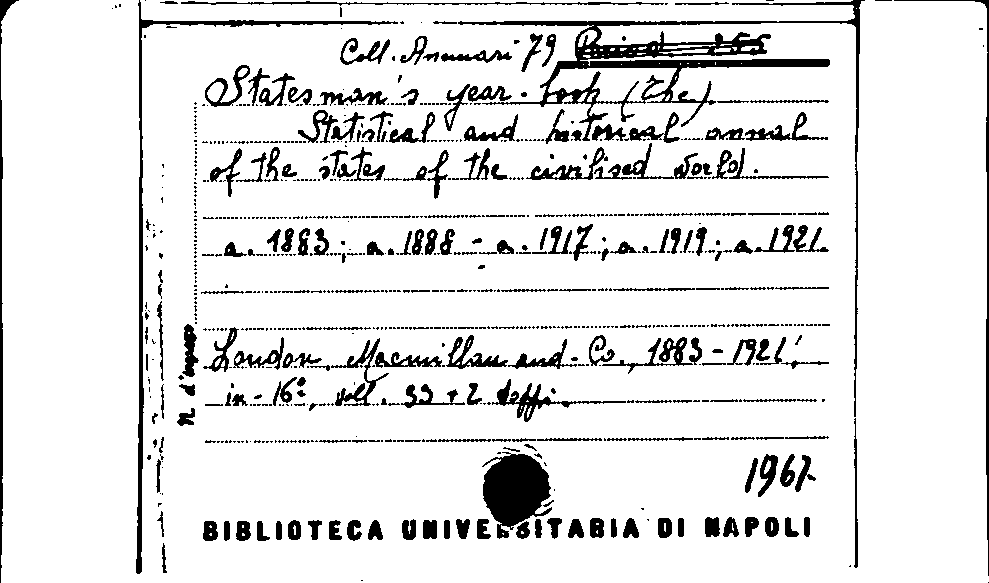 Coll. Annuari 79 Period 255
Statesman's year-book (The).
Statistical and historical annual
of the states of the civilised world.
a. 1883; a. 1888 - a. 1917; a. 1919; a. 1921.
London, Macmillan and Co., 1883-1921,
in-16°, voll. 33 + 2 doppi.
N. d'ingresso
1967
BIBLIOTECA UNIVERSITARIA DI NAPOLI